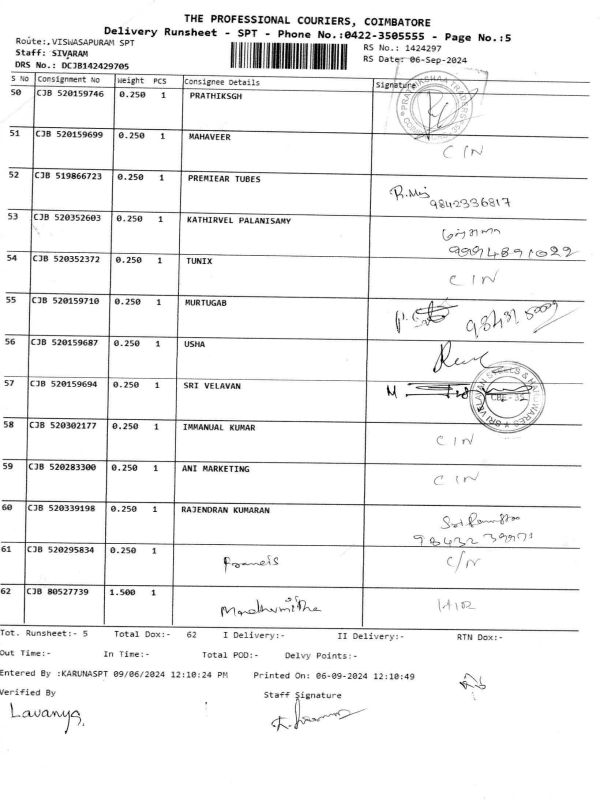 THE PROFESSIONAL COURIERS, COIMBATORE
Delivery Runsheet - SPT - Phone No.:0422-3505555 - Page No.:5
Route:. VISWASAPURAM SPT
RS No.: 1424297
Staff: SIVARAM
RS Date: 06-Sep-2024
DRS No.: DCJB142429705
S No Consignment No Weight PCS Consignee Details Signature
50 CJB 520159746 0.250 1 PRATHIKSGH
51 CJB 520159699 0.250 1 MAHAVEER CIN
52 CJB 519866723 0.250 1 PREMIEAR TUBES 9842336817
53 CJB 520352603 0.250 1 KATHIRVEL PALANISAMY
54 CJB 520352372 0.250 1 TUNIX CIN
55 CJB 520159710 0.250 1 MURTUGAB
56 CJB 520159687 0.250 1 USHA
57 CJB 520159694 0.250 1 SRI VELAVAN M SRI VELAVAN STEELS &
58 CJB 520302177 0.250 1 IMMANUAL KUMAR CIN
59 CJB 520283300 0.250 1 ANI MARKETING CIN
60 CJB 520339198 0.250 1 RAJENDRAN KUMARAN
61 CJB 520295834 0.250 1 Francis C/N
62 CJB 80527739 1.500 1 Madhumitha
Tot. Runsheet:- 5 Total Dox:- 62 I Delivery:- II Delivery:- RTN Dox:-
Out Time:- In Time:- Total POD:- Delvy Points:-
Entered By :KARUNASPT 09/06/2024 12:10:24 PM Printed On: 06-09-2024 12:10:49
Verified By Staff Signature
Lavanya